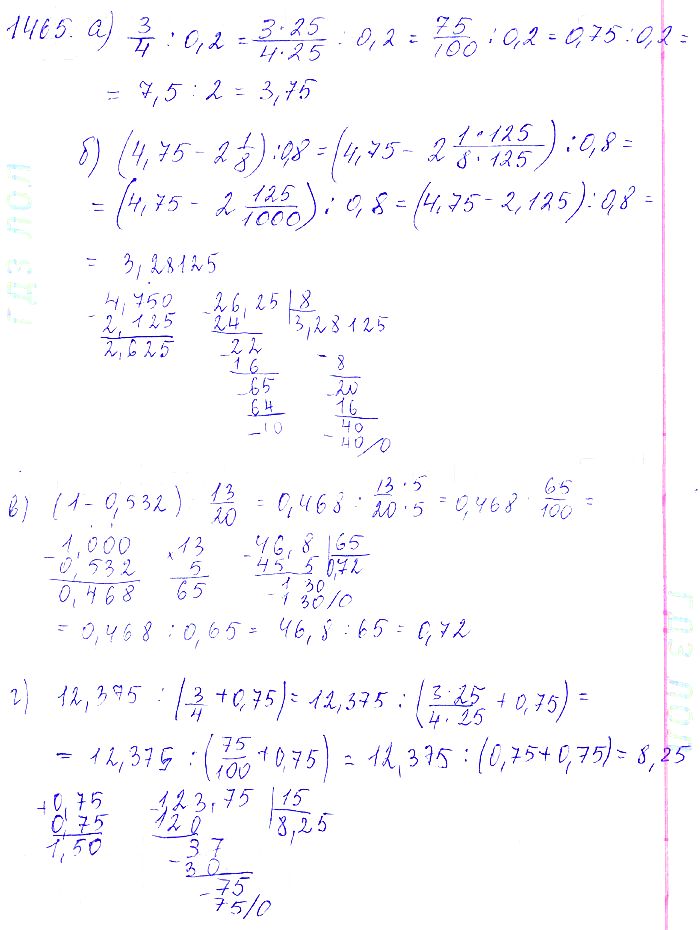 1465. а) 3/4 : 0,2 = 3·25/4·25 : 0,2 = 75/100 : 0,2 = 0,75 : 0,2 =
= 7,5 : 2 = 3,75
б) (4,75 - 2 1/8) : 0,8 = (4,75 - 2 1·125/8·125) : 0,8 =
= (4,75 - 2 125/1000) : 0,8 = (4,75 - 2,125) : 0,8 =
= 3,28125
- 4,750 - 26,25 | 8
2,125 24 3,28125
2,625 - 22 - 8
16 - 20
- 65 16
64 - 40
- 10 - 40/0
в) (1 - 0,532) : 13/20 = 0,468 : 13·5/20·5 = 0,468 : 65/100 =
- 1,000 × 13 - 46,8 | 65
0,532 5 45 5 0,72
0,468 65 - 1 30
1 30/0
= 0,468 : 0,65 = 46,8 : 65 = 0,72
г) 12,375 : (3/4 + 0,75) = 12,375 : (3·25/4·25 + 0,75) =
= 12,375 : (75/100 + 0,75) = 12,375 : (0,75 + 0,75) = 8,25
+ 0,75 - 123,75 | 15
0,75 120 8,25
1,50 - 37
30
- 75
75/0